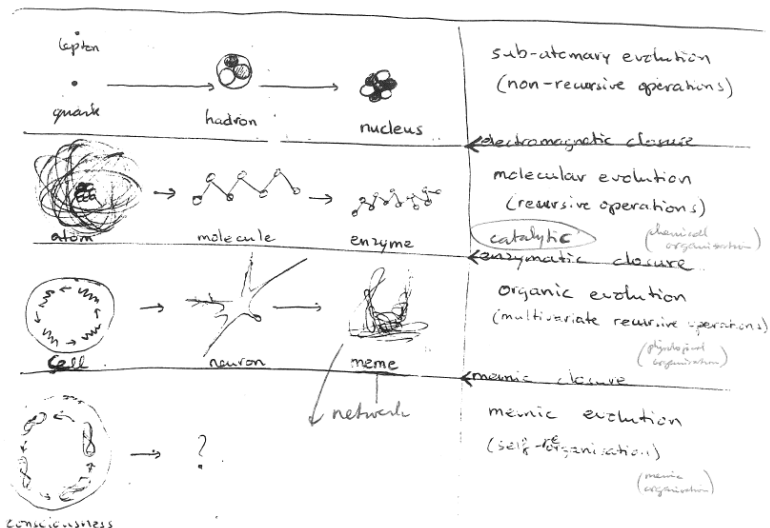 lepton
quark
hadron
nucleus
sub-atomary evolution
(non-recursive operations)
electromagnetic closure
atom
molécule
enzyme
molecular evolution
(recursive operations)
catalytic
(chemicell organisation)
enzymatic closure
cell
neuron
meme
organic evolution
(multivariate recursive operations)
organisation)
memic closure
network
?
consciousness
memic evolution
(memic
organisation)